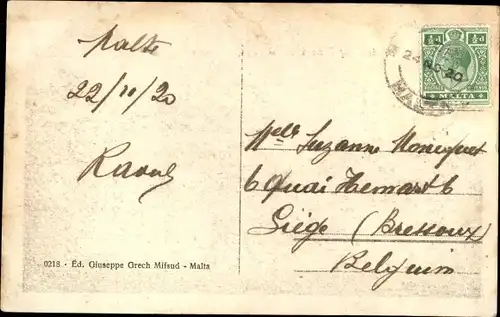 Malte
22/10/20
Raoul
0218 - Éd. Giuseppe Grech Mifsud - Malta
½d ½d
MALTA
24
20
Melle Suzanne
6 Quai
6
Liége (Bressoux)
Belgium